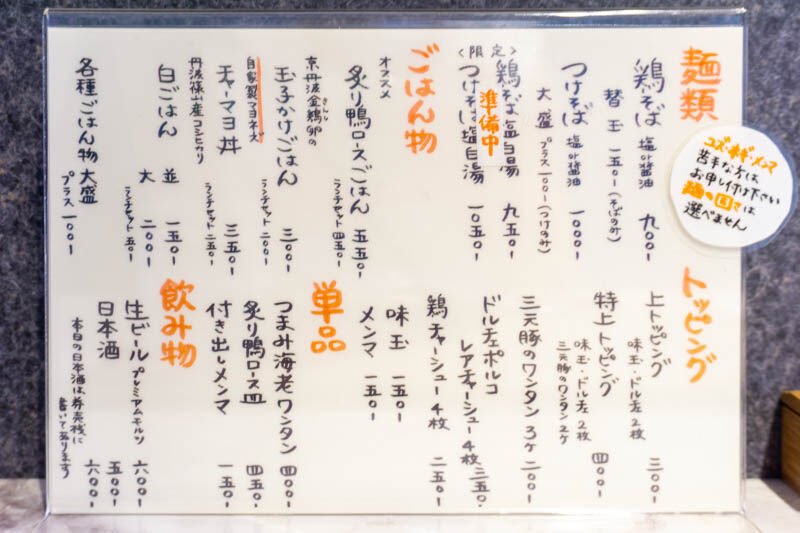 麺類
鶏そば 塩or醤油 九〇〇-
替玉 一五〇-(そばのみ)
つけそば 塩or醤油 一〇〇〇-
大盛 プラス 一〇〇-(つけのみ)
〈限定〉
鶏そば塩白湯 九五〇-
準備中
つけそば塩白湯 一〇五〇-
ごはん物
オススメ
炙り鴨ロースごはん 五五〇-
ランチセット 四五〇-
京丹波金鶏卵の
玉子かけごはん 三〇〇-
ランチセット 二〇〇-
自家製マヨネーズ
チャーマヨ丼 三五〇-
ランチセット 二五〇-
丹波篠山産コシヒカリ
白ごはん 並 一五〇-
大 二〇〇-
ランチセット 五〇-
各種ごはん物大盛
プラス 一〇〇-
苦手な方は
お申し付け下さい
麺の固さは
選べません
トッピング
上トッピング 三〇〇-
味玉・ドル左 2枚
特上トッピング 四〇〇-
味玉・ドル左 2枚
三元豚のワンタン 2ケ
三元豚のワンタン 3ケ 二〇〇-
ドルチェポルコ
レアチャーシュー 4枚 三五〇-
鶏チャーシュー 4枚 二五〇-
味玉 一五〇-
メンマ 一五〇-
単品
つまみ海老ワンタン 四〇〇-
炙り鴨ロース皿 四五〇-
付き出しメンマ 一五〇-
飲み物
生ビール プレミアムモルツ 六〇〇-
日本酒 五〇〇-
六〇〇-
本日の日本酒は券売機に
書いてあります